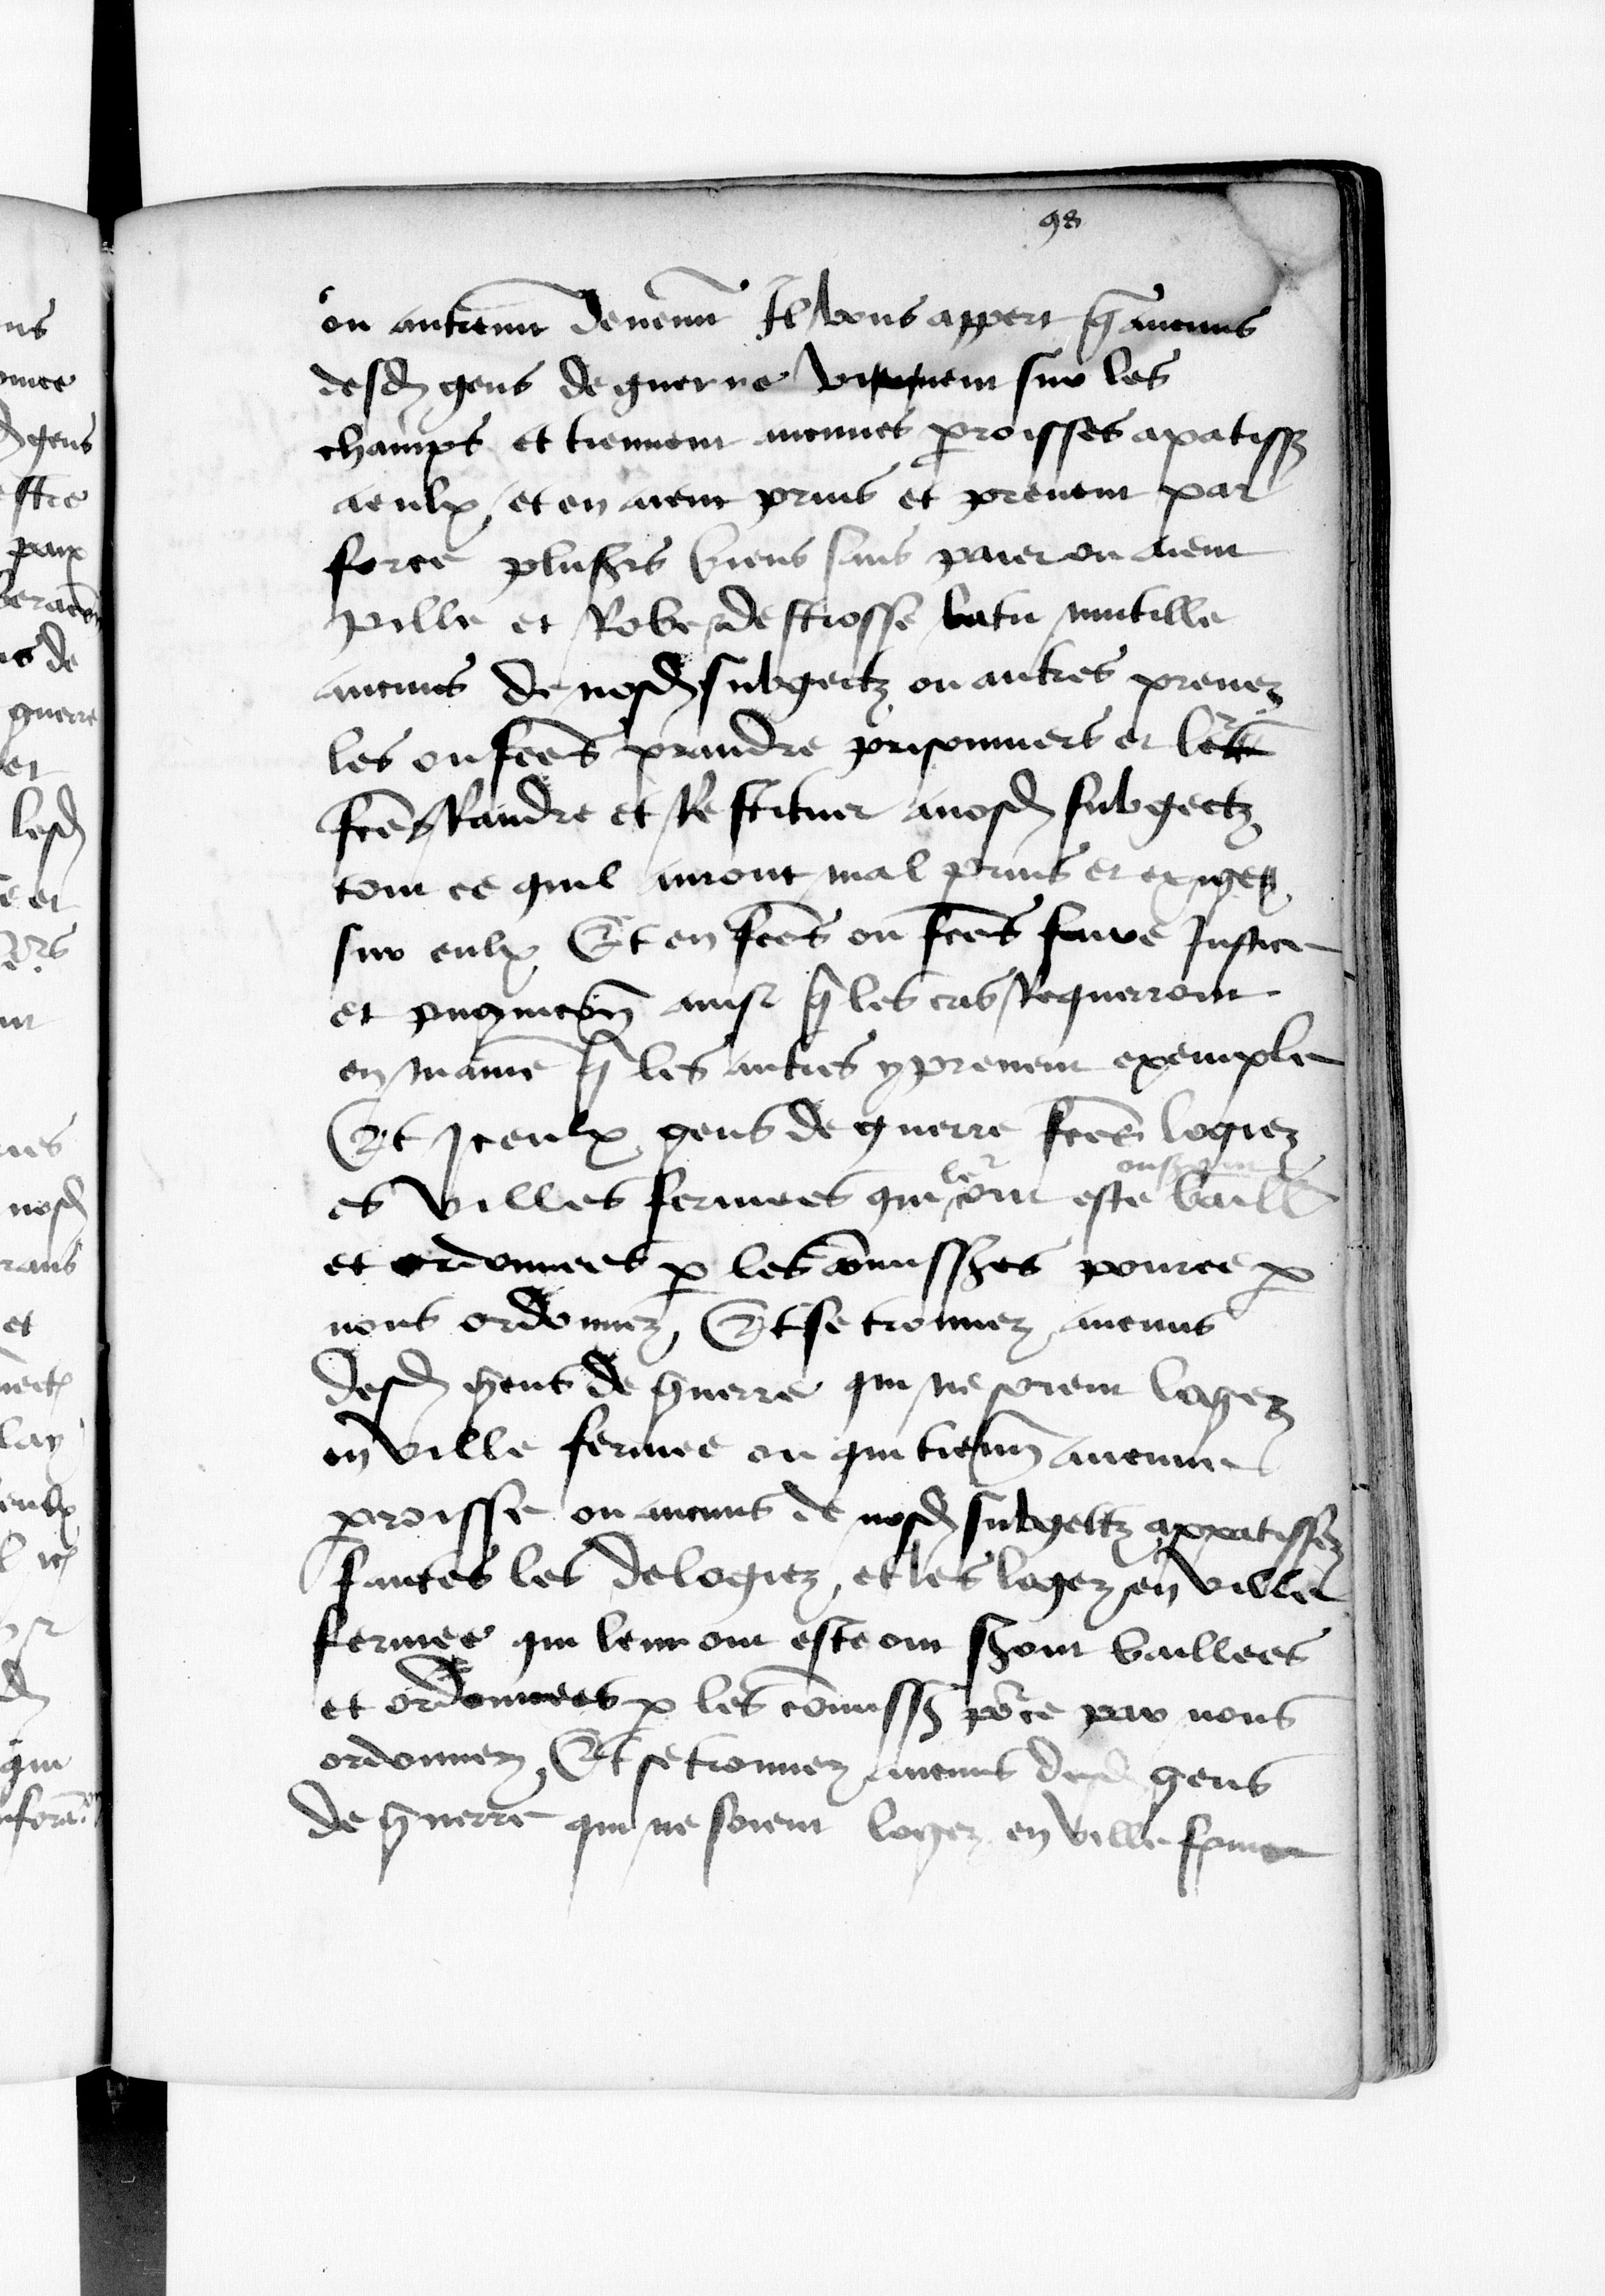 98
ou autrement deuement Il vous appert que aucuns
desd gens de guerre vivent sur les
champs et tiennent aucunes parroisses apatiss
a eulx et en aient prins et prenent par
force plusrs biens sans paier ou aient
pille et Robe destrosse batu mutille
aucuns de nosd subgectz ou autres prenez
les ou fetes prandre prisonniers et ler
fetes Randre et Restituer a nosd subgectz
tout ce quil auront mal prins et exige
sur eulx Et en fetes ou fetes faire Justice
et pugnicion ainsi que les cas Requerront
en maniere que les autres y prenent exemple
Et Iceulx gens de guerre fetes logiez
es villes fermees que ler ont este ou seront baill
et ordonnees par les commissres pour ce par
nous ordonnez Et se trouvez aucuns
desd gens de guerre qui ne soient logez
en ville fermee ou qui tiennent aucune
parroisse ou aucuns de nosd subgectz appatissez
faictes les delogiez et les logez en ville
fermee qui leur ont este ou seront baillees
et ordonnees par les commiss pour ce par nous
ordonnez Et se trouvez aucuns desd gens
de guerre qui ne soient logez en ville fermee